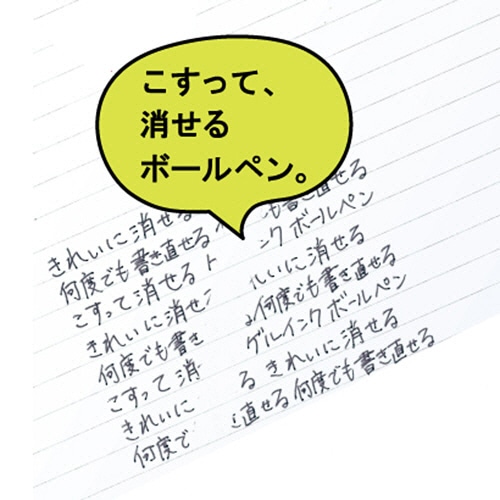 こすって、
消せる
ボールペン。
きれいに消せる
も書き直せる
何度でも書き直せる
ンク ボールペン
こすって消せる
いに消せる
きれいに消せ
何度でも書き直せる
何度でも書き
ゲルインクボールペン
こすって消
る きれいに消せる
きれいに
直せる 何度でも書き直せる
何度で